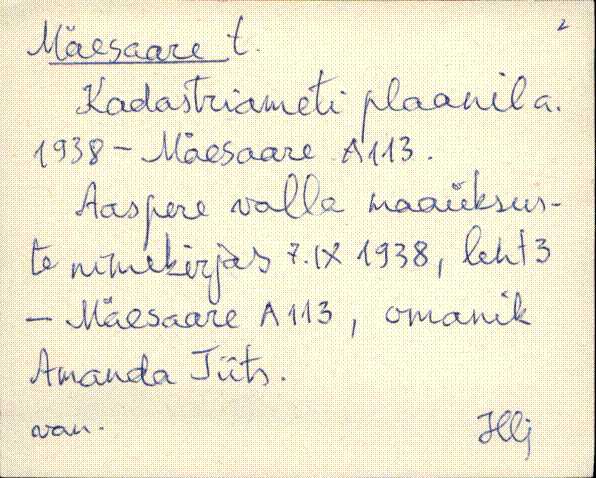 Mäesaare t. 2
Kadastriameti plaanil a.
1938 – Mäesaare A113.
Aaspere valla maaüksus-
te nimekirjas 7.IX 1938, leht 3
– Mäesaare A113, omanik
Amanda Tüts.
van.